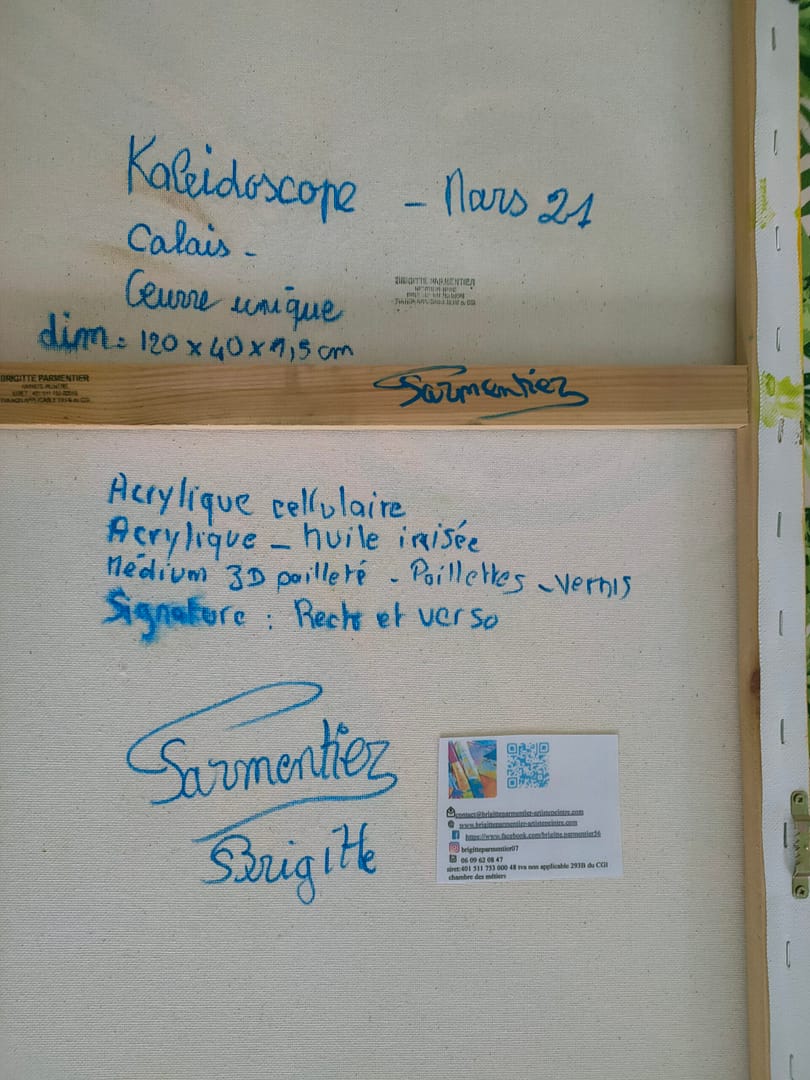 Kaleidoscope - Mars 21
Calais -
Œuvre unique
dim = 120 x 40 x 1,5 cm
BRIGITTE PARMENTIER
BRIGITTE PARMENTIER
Parmentier
Acrylique cellulaire
Acrylique - huile irisée
Médium 3D pailleté - Paillettes - Vernis
Signature : Recto et verso
Parmentier
Brigitte
contact@brigitteparmentier-artistepeintre.com
www.brigitteparmentier-artistepeintre.com
https://www.facebook.com/brigitte.parmentier56
brigitteparmentier07
06 09 62 08 47
siret:401 511 753 000 48 tva non applicable 293B du CGI
chambre des métiers